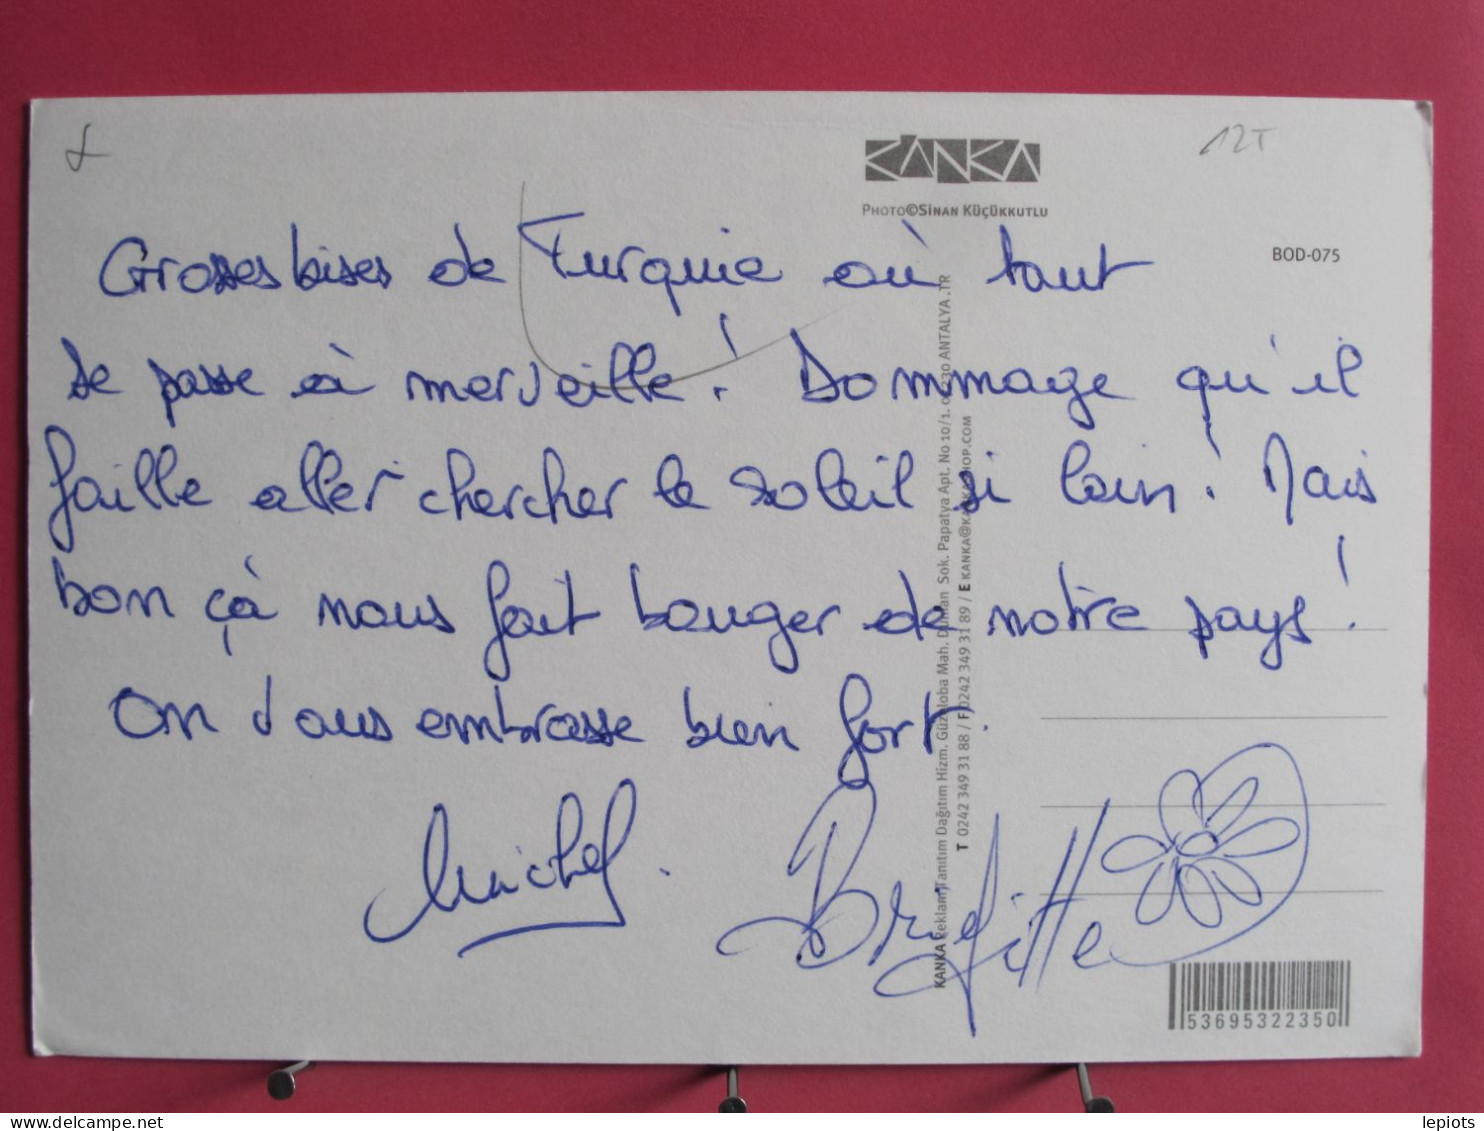 12T
KANKA
PHOTO©SİNAN KÜÇÜKKUTLU
BOD-075
Grosses bises de Turquie où tout
se passe à merveille ! Dommage qu'il
faille aller chercher le soleil si loin ! Mais
bon çà nous fait bouger de notre pays !
On vous embrasse bien fort.
Michel.
Brigitte
KANKA Reklam Tanıtım Dağıtım Hizm. Güzeloba Mah. Duman Sok. Papatya Apt. No 10/1. 07230 ANTALYA .TR
T 0242 349 31 88 / F 0242 349 31 89 / E KANKA@KANKASHOP.COM
53695322350
lepiots
delcampe.net